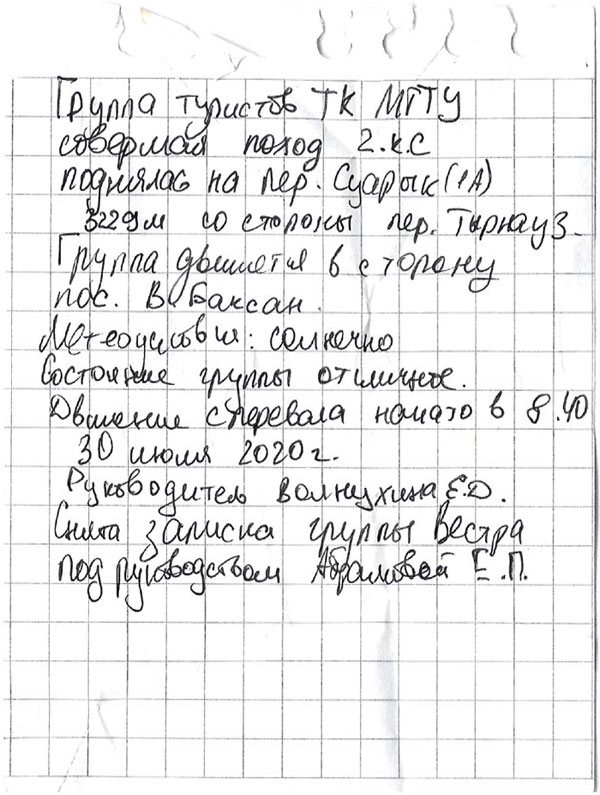 Группа туристов ТК МГТУ
совершая поход 2 к.с
поднялась на пер. Суарык (1А)
3229м со стороны пер. Тырнауз.
Группа движется в сторону
пос. В Баксан.
Метеоусловия: солнечно
Состояние группы отличное.
Движение с перевала начато в 8.40
30 июля 2020 г.
Руководитель Волнухина Е.Д.
Снята записка группы Вестра
под руководством Абрамовой Е.П.